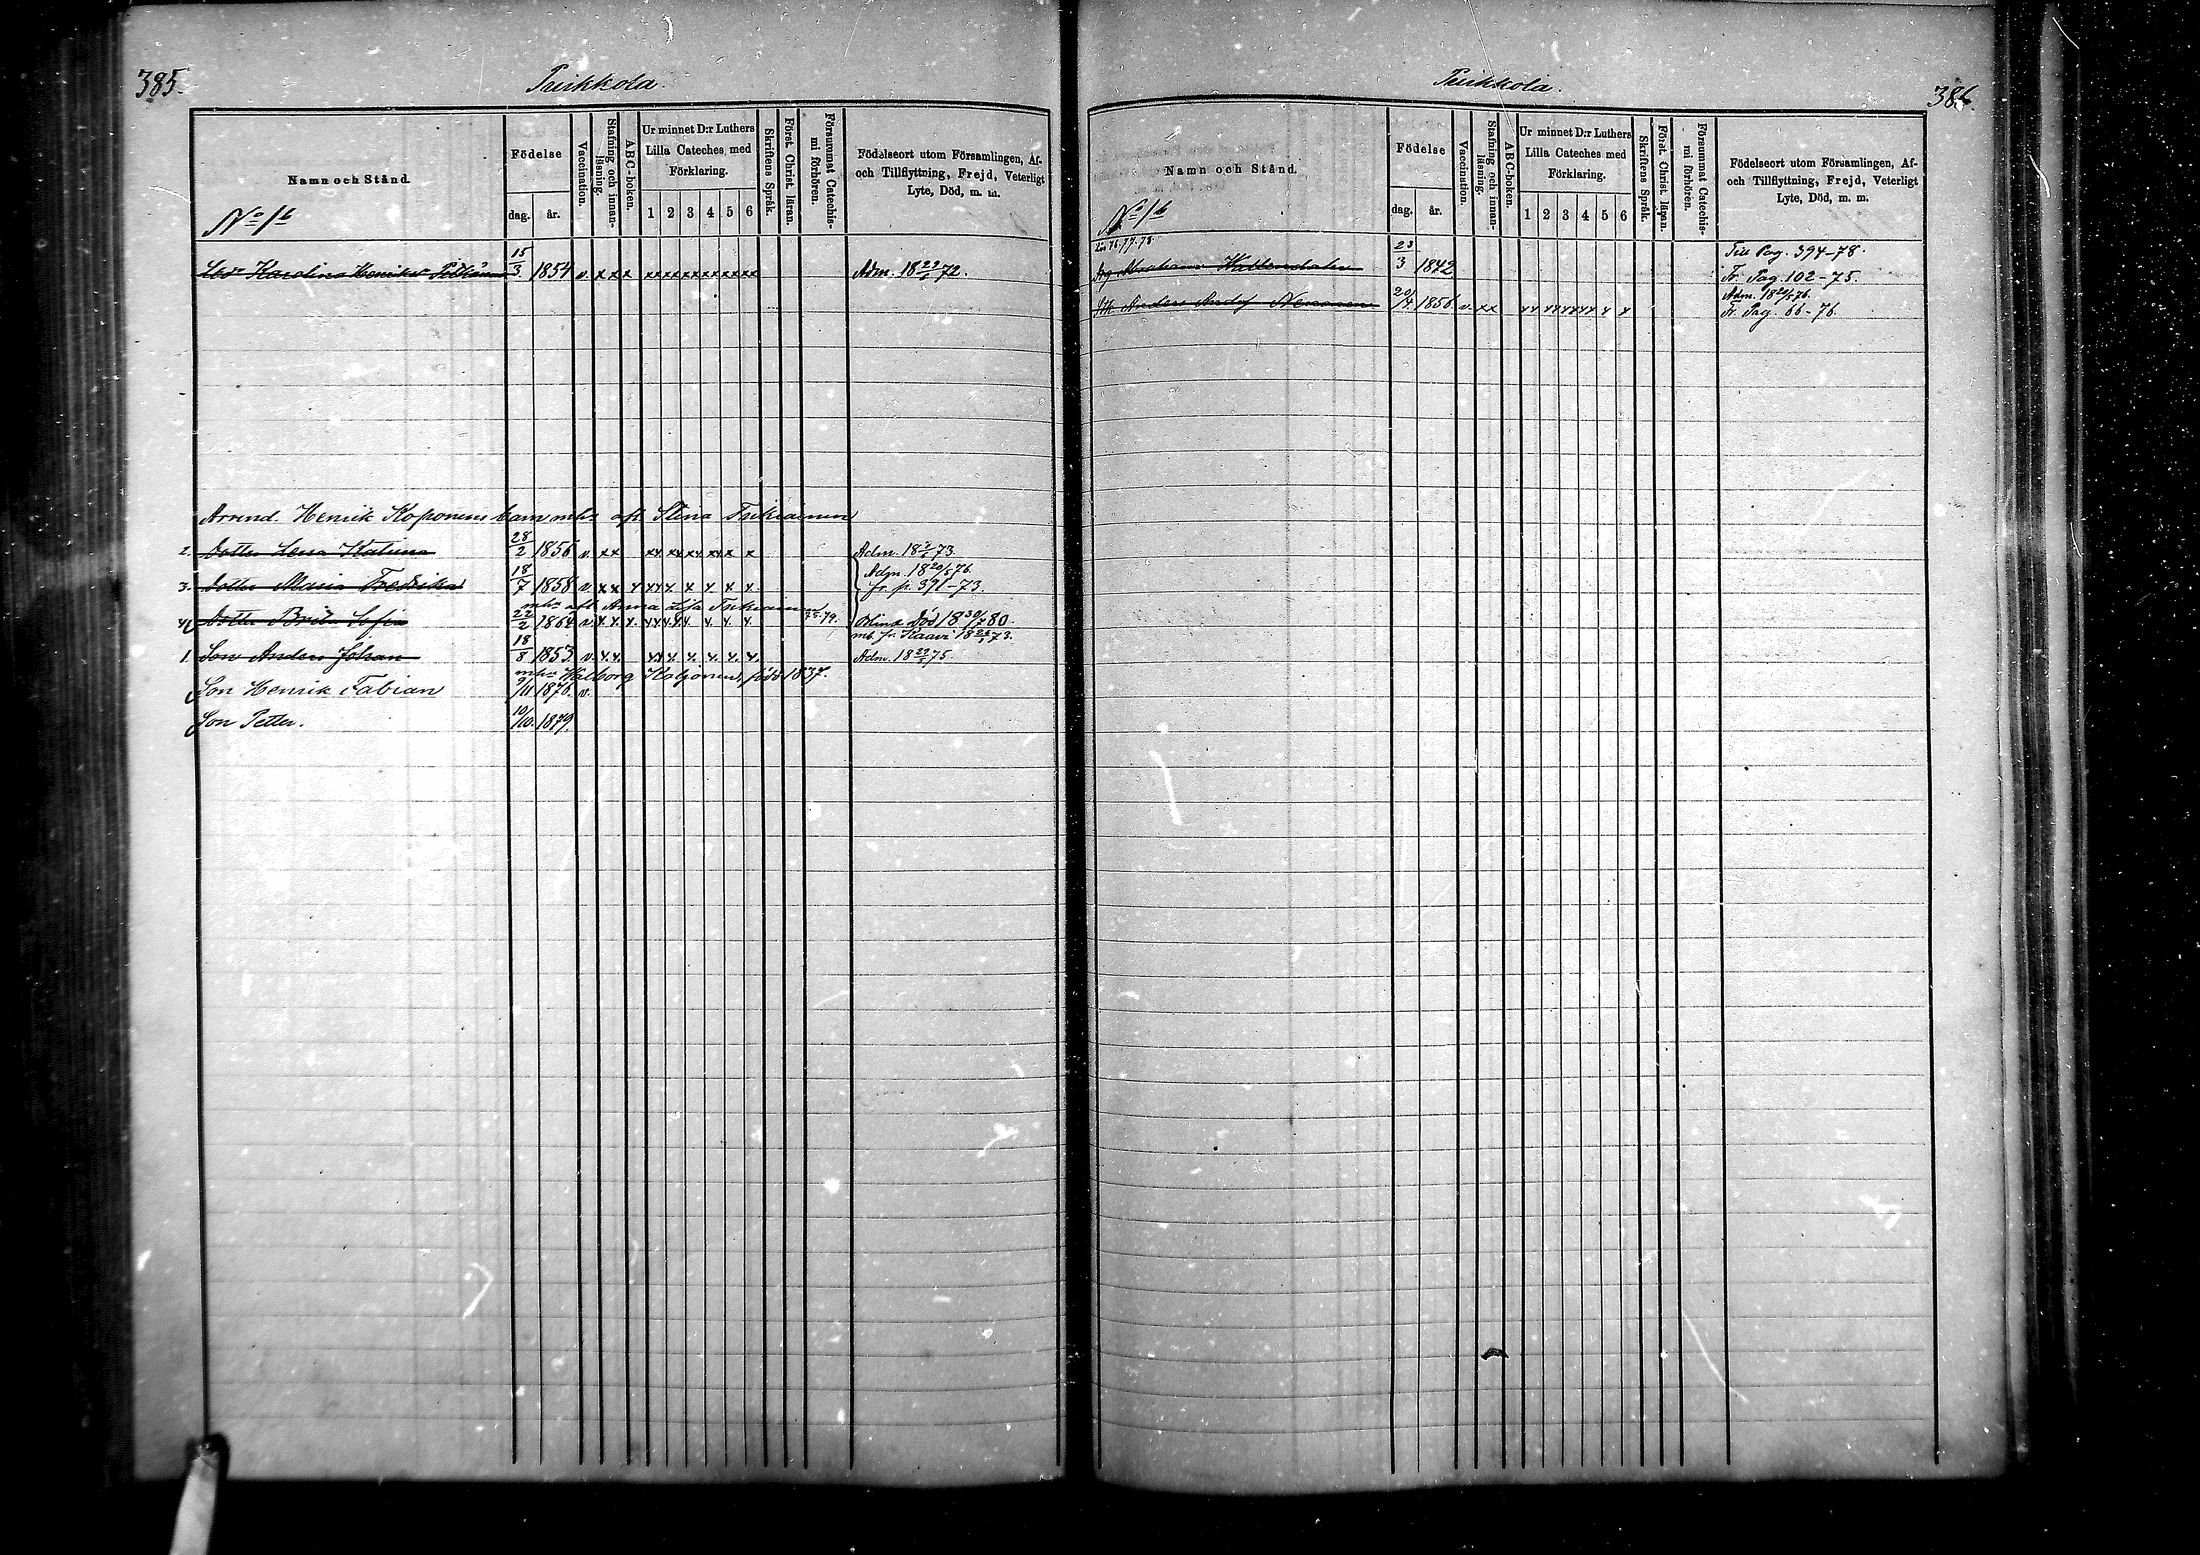 385.
Puikkola.
Namn och Stånd.
Födelse
dag. år.
Vaccination.
Stafning och innanläsning.
ABC-boken.
Ur minnet D:r Luthers
Lilla Cateches med
Förklaring.
1 2 3 4 5 6
Skriftens Språk.
Först. Christ. läran.
Försummat Catechismi förhören.
Födelseort utom Församlingen, Af-
och Tillflyttning, Frejd, Veterligt
Lyte, Död, m. m.
No 1/6
Karolina Henriksr 15/3 1854 v x x x xx xx xx xx xx xx Adm. 18 72.
Arrend. Henrik Koponens barn af. Stina
2. Dotter Lena Katrina 28/2 1856 v. x x xx xx xx xx x x Adm. 18 73
3. Dotter Maria Fredrika 18/7 1858 v. x x x xx x x x x x. Adm. 18 20/5 76.
fr. p. 391-73.
aft Anna Lisa
4. Dotter Brita Sofia 22/2 1864 v. x x x Blind Död 18 80.
mb. fr. Kaavi 18 73.
1. Son Anders Johan 18/8 1853 v. x. x. xx x. x. x. x. x. Adm. 18 75
Walborg Koponen, född 1837.
Son Henrik Fabian 9/11 1876. v.
Son Petter. 10/10. 1879.
386.
Puikkola.
Namn och Stånd.
Födelse
dag. år.
Vaccination.
Stafning och innanläsning.
ABC-boken.
Ur minnet D:r Luthers
Lilla Cateches med
Förklaring.
1 2 3 4 5 6
Skriftens Språk.
Först. Christ. läran.
Försummat Catechismi förhören.
Födelseort utom Församlingen, Af-
och Tillflyttning, Frejd, Veterligt
Lyte, Död, m. m.
No 1/6
76. 77. 78. Till Pag. 394-78.
Abraham 23/3 1842 Fr. Pag 102-75.
Adm. 18 76.
Anders 20/4 1856 v. x x Fr. Pag. 66-76.